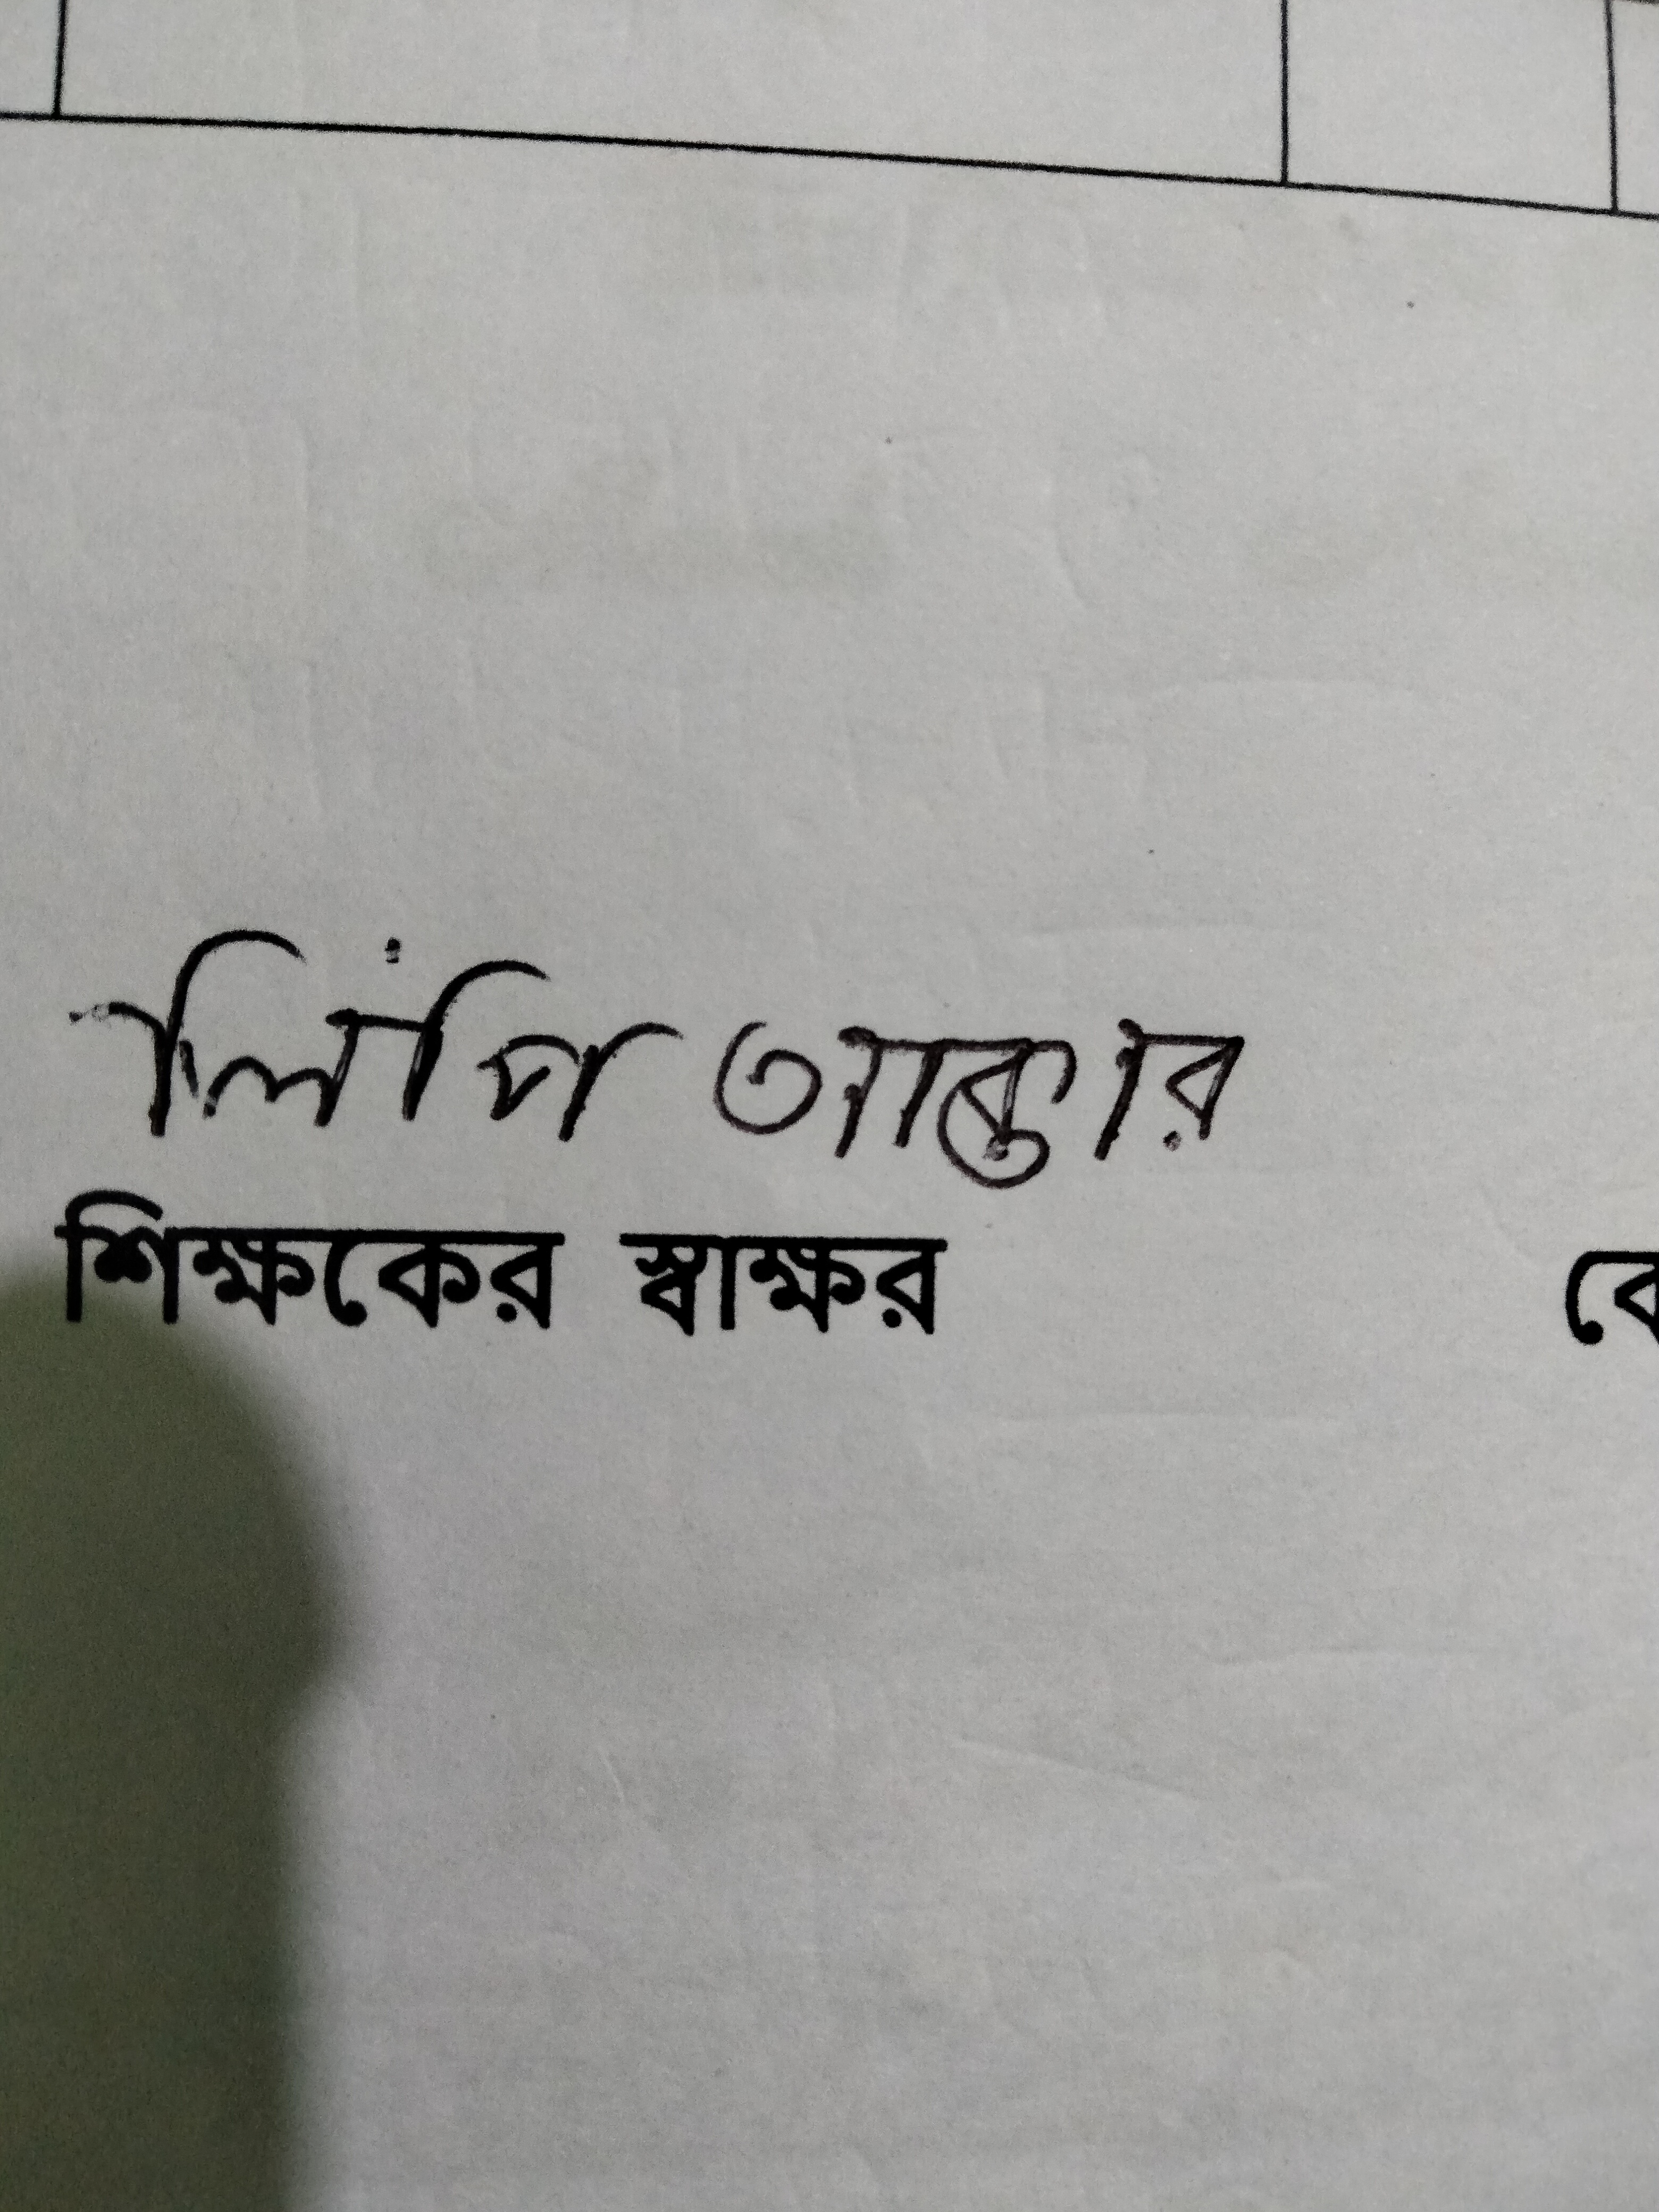 লিপি আক্তার
শিক্ষকের স্বাক্ষর